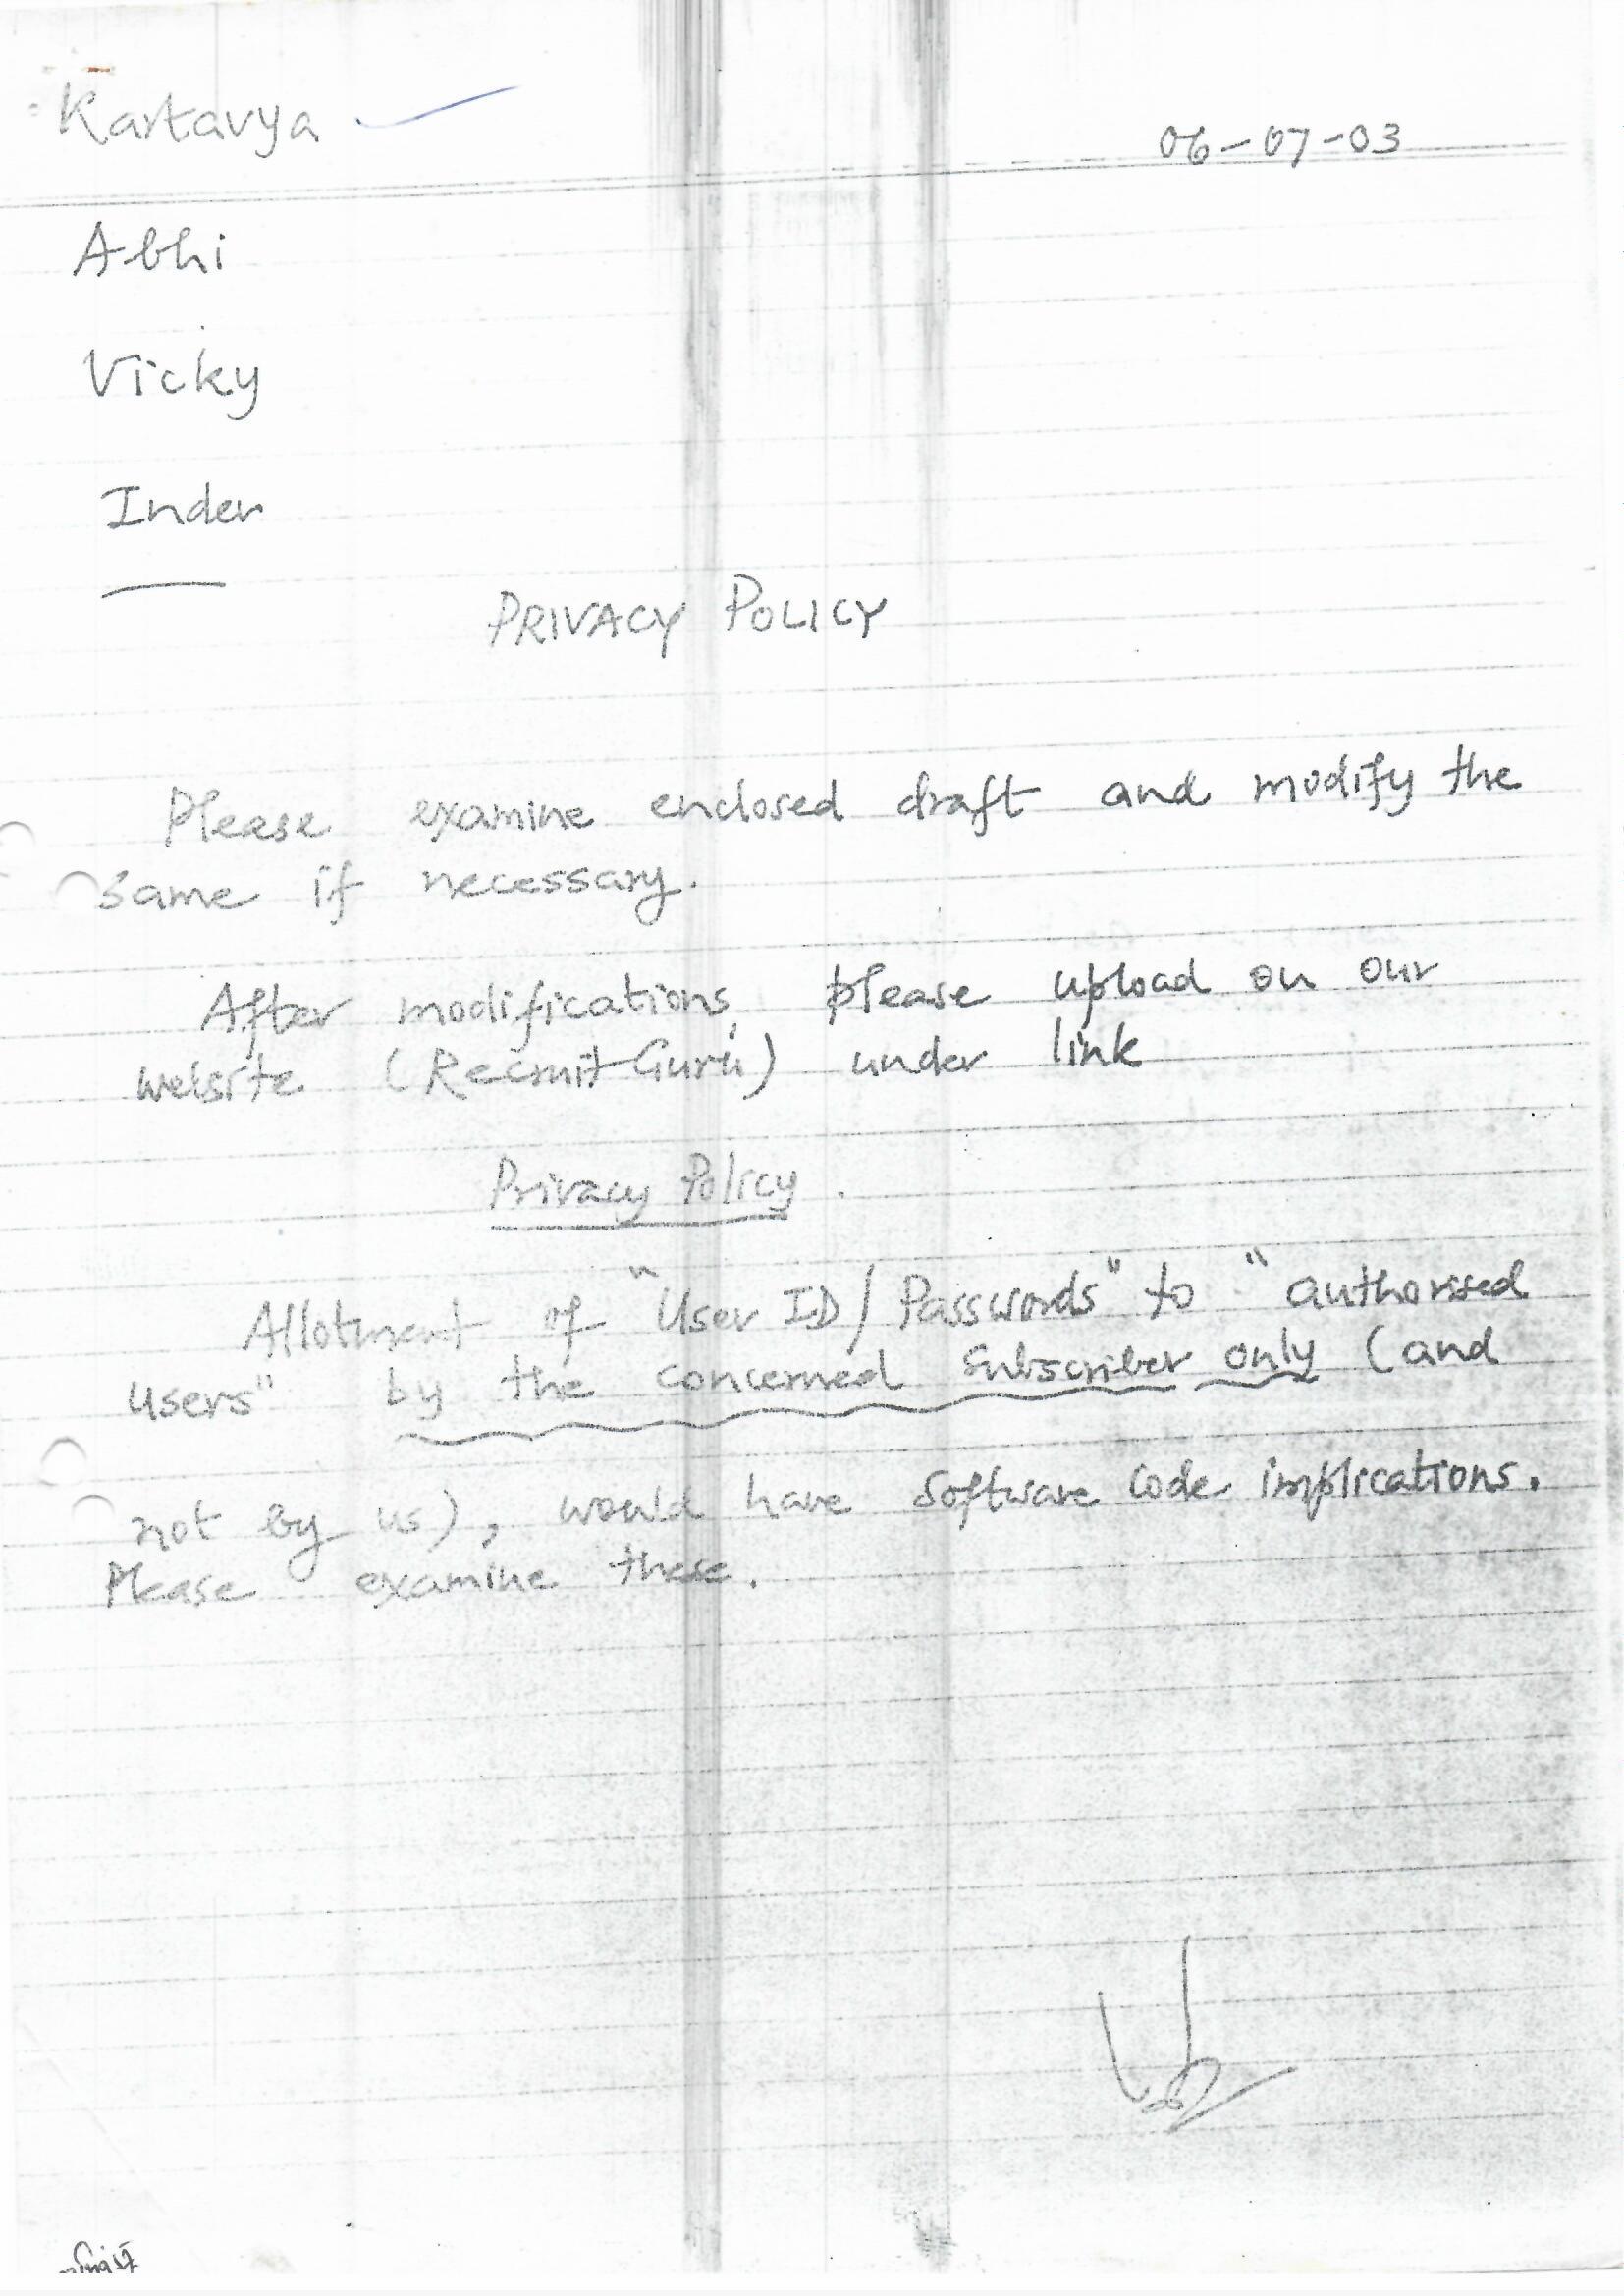 Kartavya
06-07-03
Abhi
Vicky
Inder
PRIVACY POLICY
Please examine enclosed draft and modify the
same if necessary.
After modifications, please upload on our
website (RecruitGuru) under link
Privacy Policy.
Allotment of "User ID/Passwords" to "authorised
users" by the concerned subscriber only (and
not by us), would have software code implications.
Please examine these.